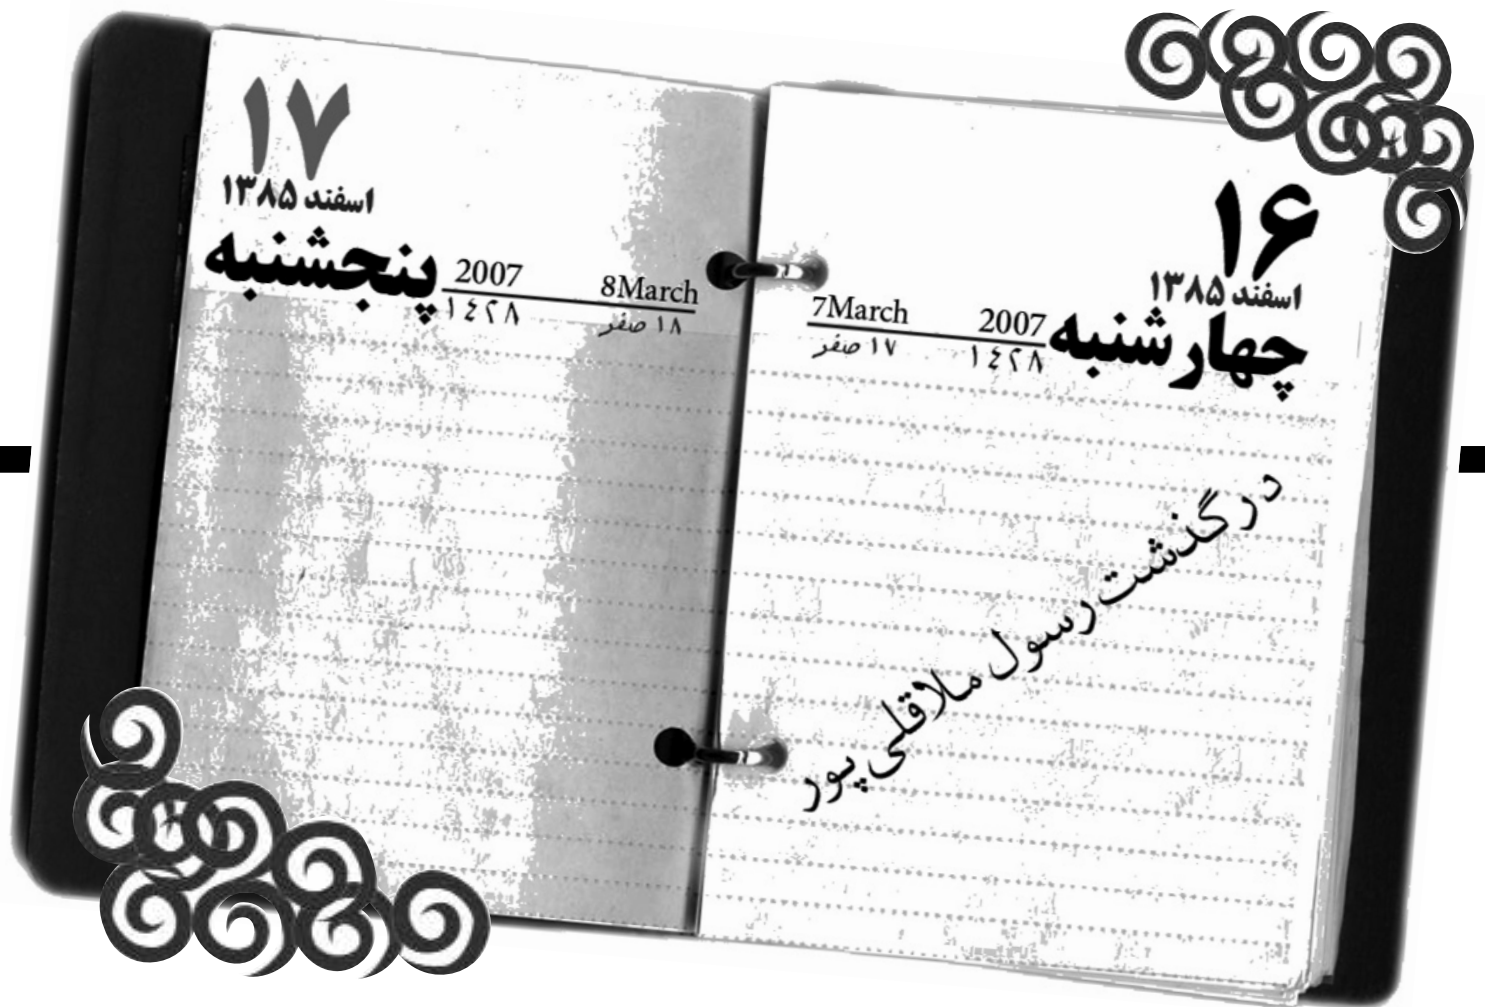 ۱۶
اسفند ۱۳۸۵
چهارشنبه
2007 7March
۱٤۲۸ ۱۷ صفر
درگذشت رسول ملاقلی‌پور
۱۷
اسفند ۱۳۸۵
پنجشنبه
2007 8March
۱٤۲۸ ۱۸ صفر